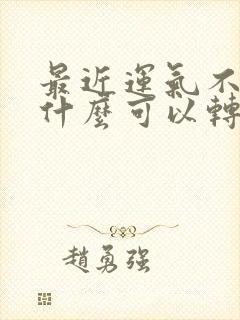 最近運氣不
什麼可以轉
趙勇強